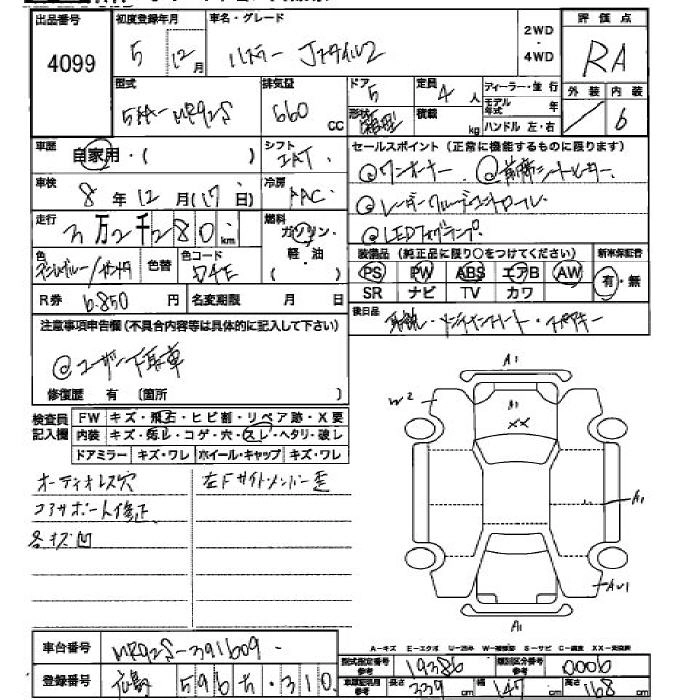 出品番号 初度登録年月 車名・グレード 2WD・4WD 評価点
4099 5 12月 ハスラー Jスタイル2 RA
型式 排気量 ドア 定員 ディーラー・並行 外装 内装
5AA-MR92S 660 CC 5 4人 モデル年式 年 6
形状 箱型 積載 kg ハンドル 左・右
車歴 自家用・( ) シフト IAT セールスポイント (正常に機能するものに限ります)
車検 8年12月(17日) 冷房 AAC @ワンオーナー @前席シートヒーター
走行 3万2千280km 燃料 ガソリン・軽油 ( ) @レーダークルーズコントロール
@LEDフォグランプ
色 色替 色コード 装備品 (純正品に限り○をつけてください) 新車保証書
PS PW ABS エアB AW 有・無
R券 6850円 名変期限 月 日 SR ナビ TV カワ
注意事項申告欄 (不具合内容等は具体的に記入して下さい) 後日品
@ユーザー下取車
修復歴 有 〔箇所 〕
検査員記入欄 FW キズ・飛石・ヒビ割・リペア跡・X要
内装 キズ・汚レ・コゲ・穴・スレ・ヘタリ・破レ
ドアミラー キズ・ワレ ホイール・キャップ キズ・ワレ
オーディオレス穴 左Fサイドメンバー歪
コアサポート修正
各キズ凹
A1
W2
A1
XX
A1
AU1
A1
車台番号 MR92S-391609
登録番号 広島 596 ち・310
A-キズ E-エクボ U-凹み W-補修跡 S-サビ C-腐食 XX-交換済
型式指定番号 参考 19386 類別区分番号 参考 0006
車庫証明用 参考 長さ 339cm 幅 147cm 高さ 168cm